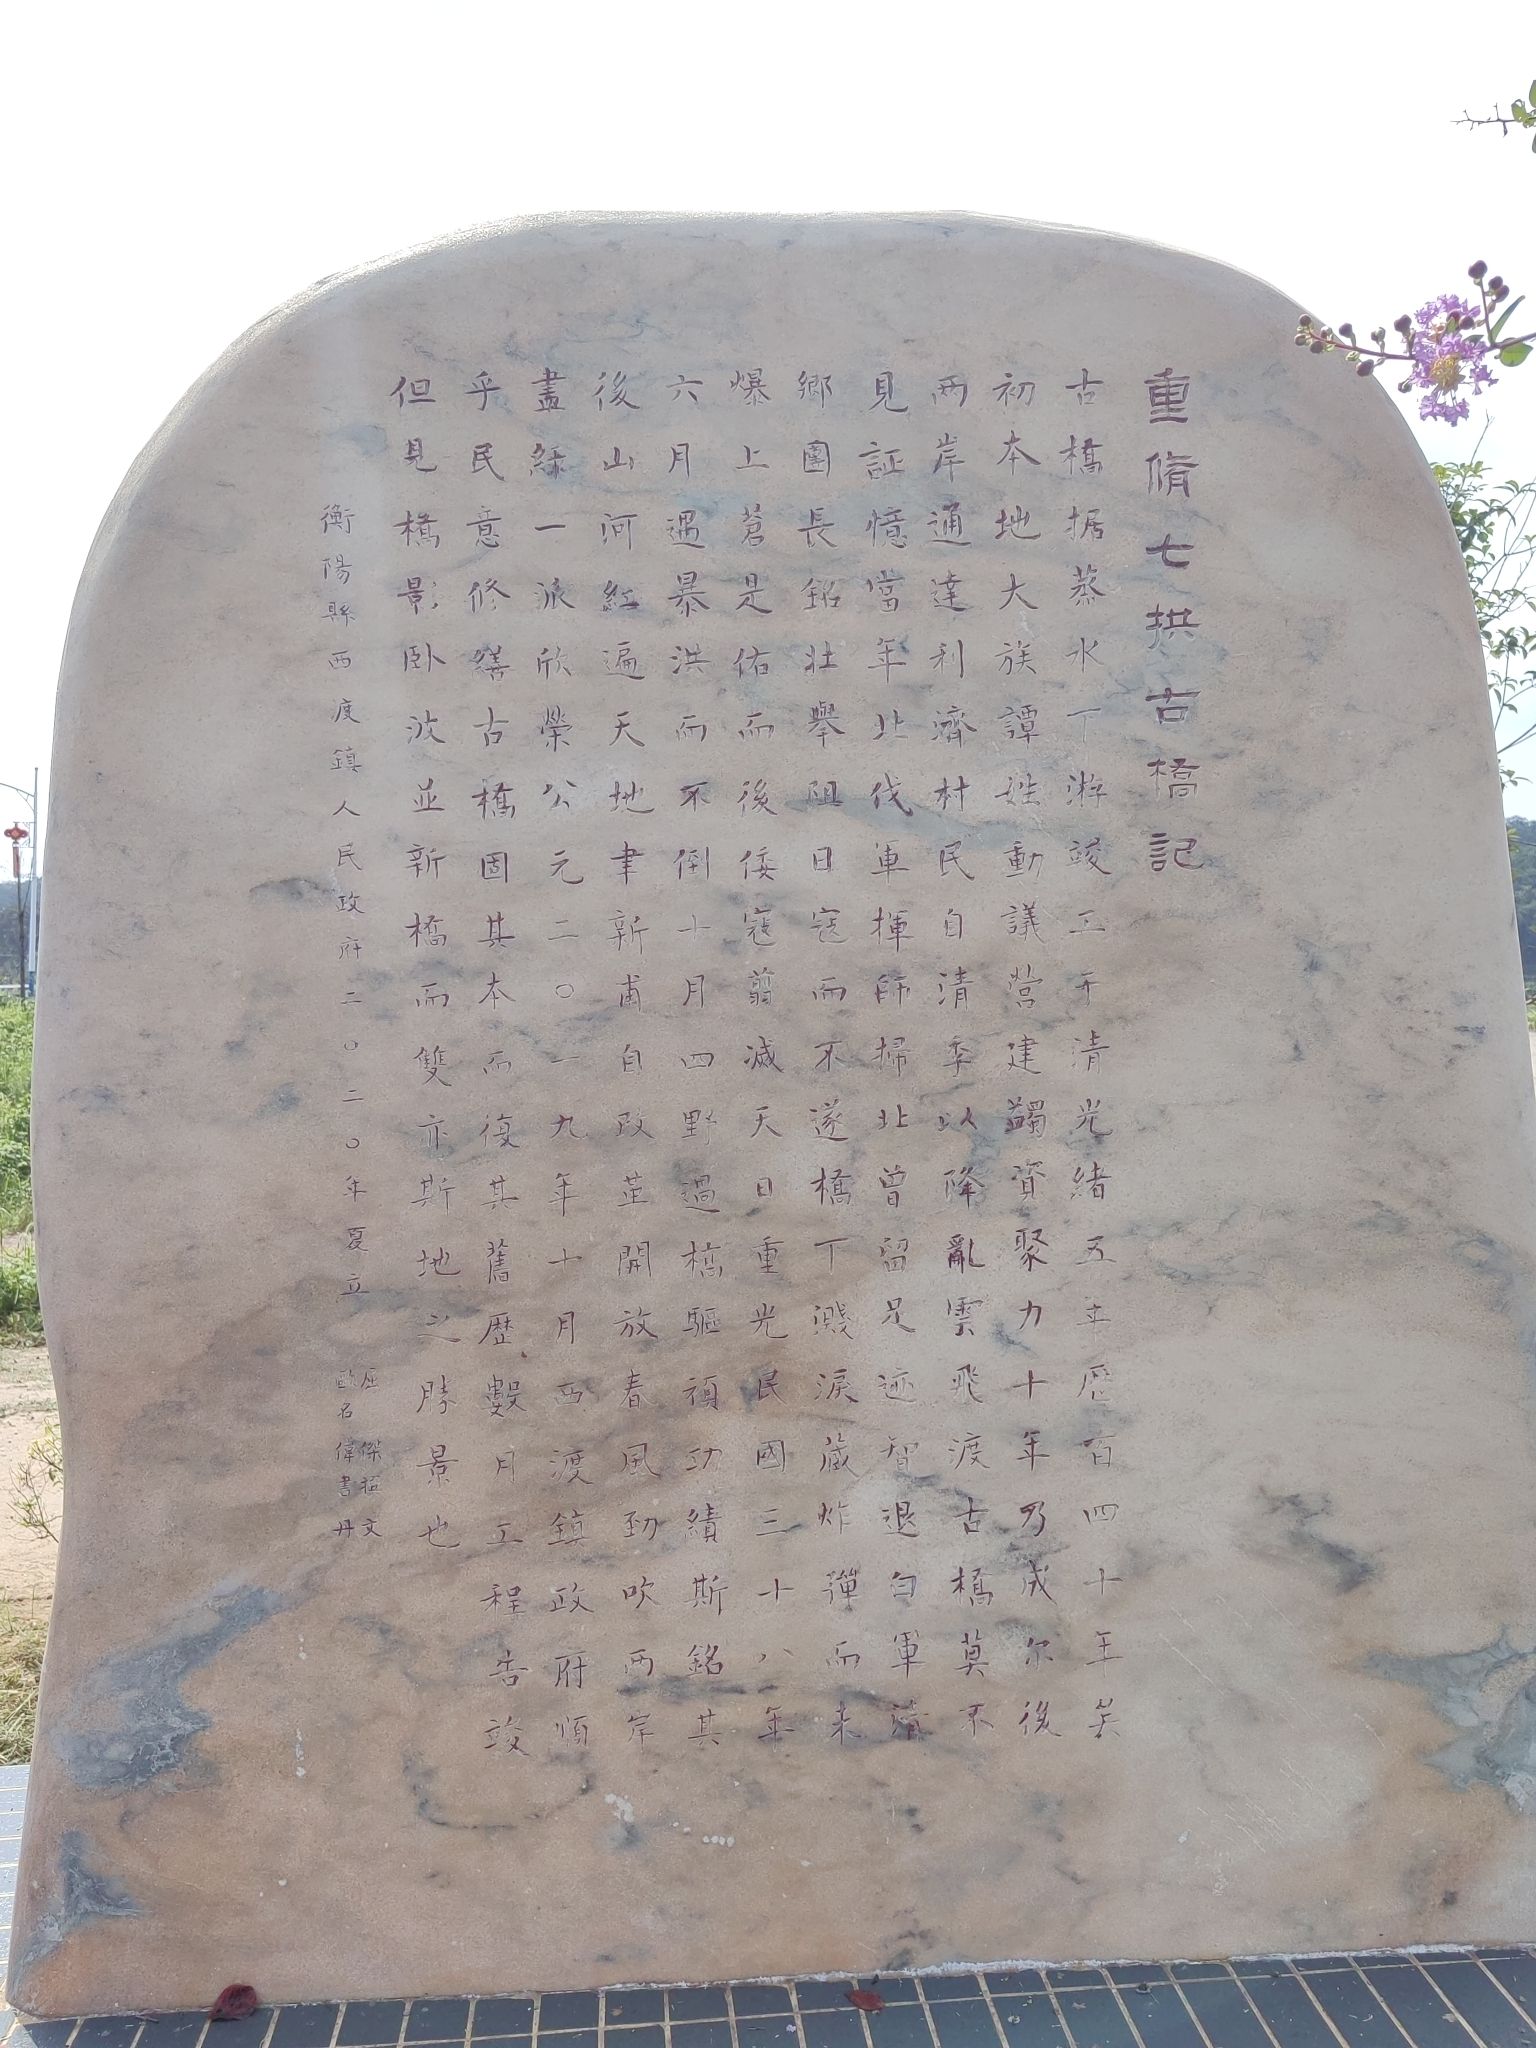 重脩七拱古橋記
古橋据蒸水丁游竣工于清光緒五年歷百四十年矣
初本地大族譚姓動議營建蠲資聚力十年乃成尔後
両岸通達利濟村民自清季以降亂雲飛渡古橋莫不
見証憶當年北伐軍揮師掃北曾留足迹智退白軍清
鄉團長銘壯舉阻日寇而不遂橋丁濺淚蔵炸彈而未
爆上蒼是佑而後倭寇翦滅天日重光民國三十八年
六月遇暴洪而不倒十月四野過橋驅禎功績斯銘其
後山河紅遍天地聿新甫自改革開放春風勁吹両岸
盡綠一派欣榮公元二〇一九年十月西渡鎮政府順
乎民意修繕古橋固其本而復其舊歷數月工程告竣
但見橋影卧波並新橋而雙亦斯地之勝景也
衡陽縣西渡鎮人民政府二〇二〇年夏立
屈傑撰文
歐名偉書丹